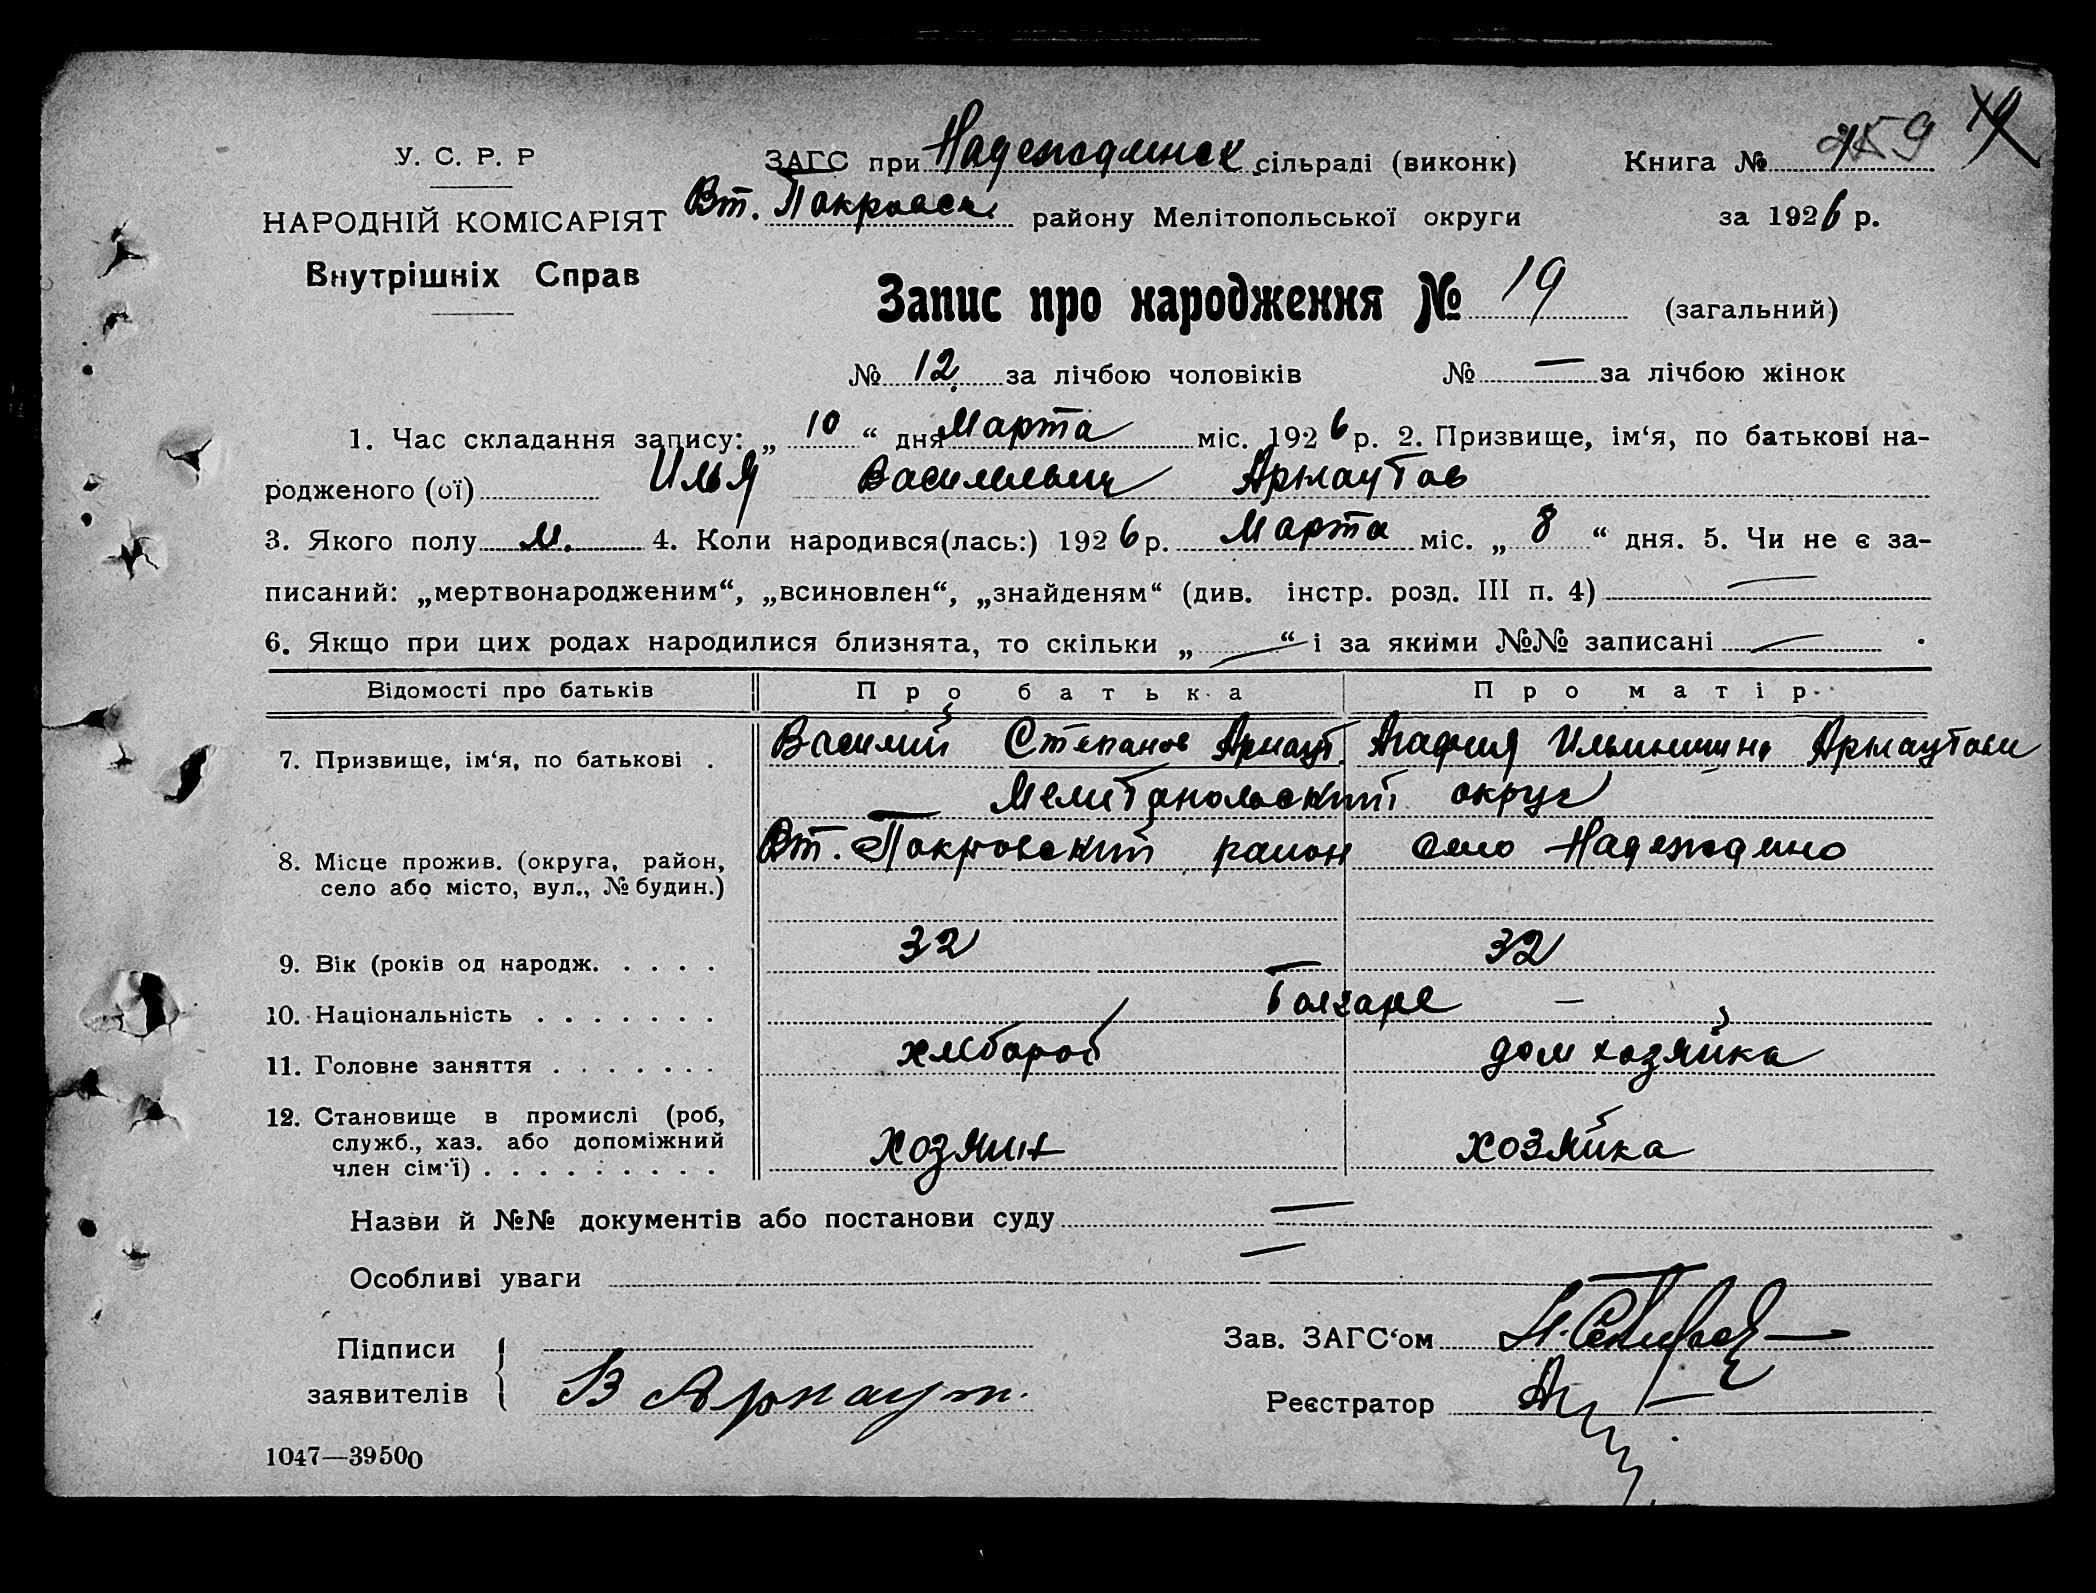 У. С. Р. Р
ЗАГС при Надеждинск сільраді (виконк) Книга №
НАРОДНІЙ КОМІСАРІЯТ Вт. Покровск. району Мелітопольської округи за 1926 р.
Внутрішніх Справ
Запис про народження № 19 (загальний)
№ 12 за лічбою чоловіків № — за лічбою жінок
1. Час складання запису: „ 10 “ дня Марта міс. 1926 р. 2. Призвище, ім‘я, по батькові на-
родженого (ої) Илья Васильевич Арнаутов
3. Якого полу м. 4. Коли народився(лась:) 1926 р. Марта міс. „ 8 “ дня. 5. Чи не є за-
писаний: „мертвонародженим“, „всиновлен“, „знайденям“ (див. інстр. розд. III п. 4) —
6. Якщо при цих родах народилися близнята, то скільки „ — “ і за якими №№ записані — .
Відомості про батьків Про батька Про матір
7. Призвище, ім‘я, по батькові . Василий Степанов Арнаут Агафия Ильинишна Арнаутови
— Мелитопольский округ
Вт. Покровский район село Надеждино
8. Місце прожив. (округа, район,
село або місто, вул., № будин.)
9. Вік (років од народж. . . . . 32 32
10. Національність . . . . . . . Болгаре —
11. Головне заняття . . . . . . . хлібороб дом хозяйка
12. Становище в промислі (роб,
служб., хаз. або допоміжний
член сім‘ї) . . . . . . . . . хозяин хозяйка
Назви й №№ документів або постанови суду —
Особливі уваги —
Підписи
заявителів В Арнаут.
Зав. ЗАГС‘ом
Реєстратор
1047—39500